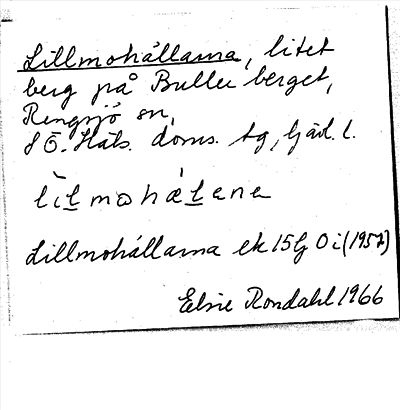 Lillmohällarna, litet
berg på Buller berget,
Rengsjö sn,
S Ö. Häls. doms. tg, Gävl. l.
lìtmohätana
Lillmohällarna ek 15G 0i (1957)
Elsie Rondahl 1966